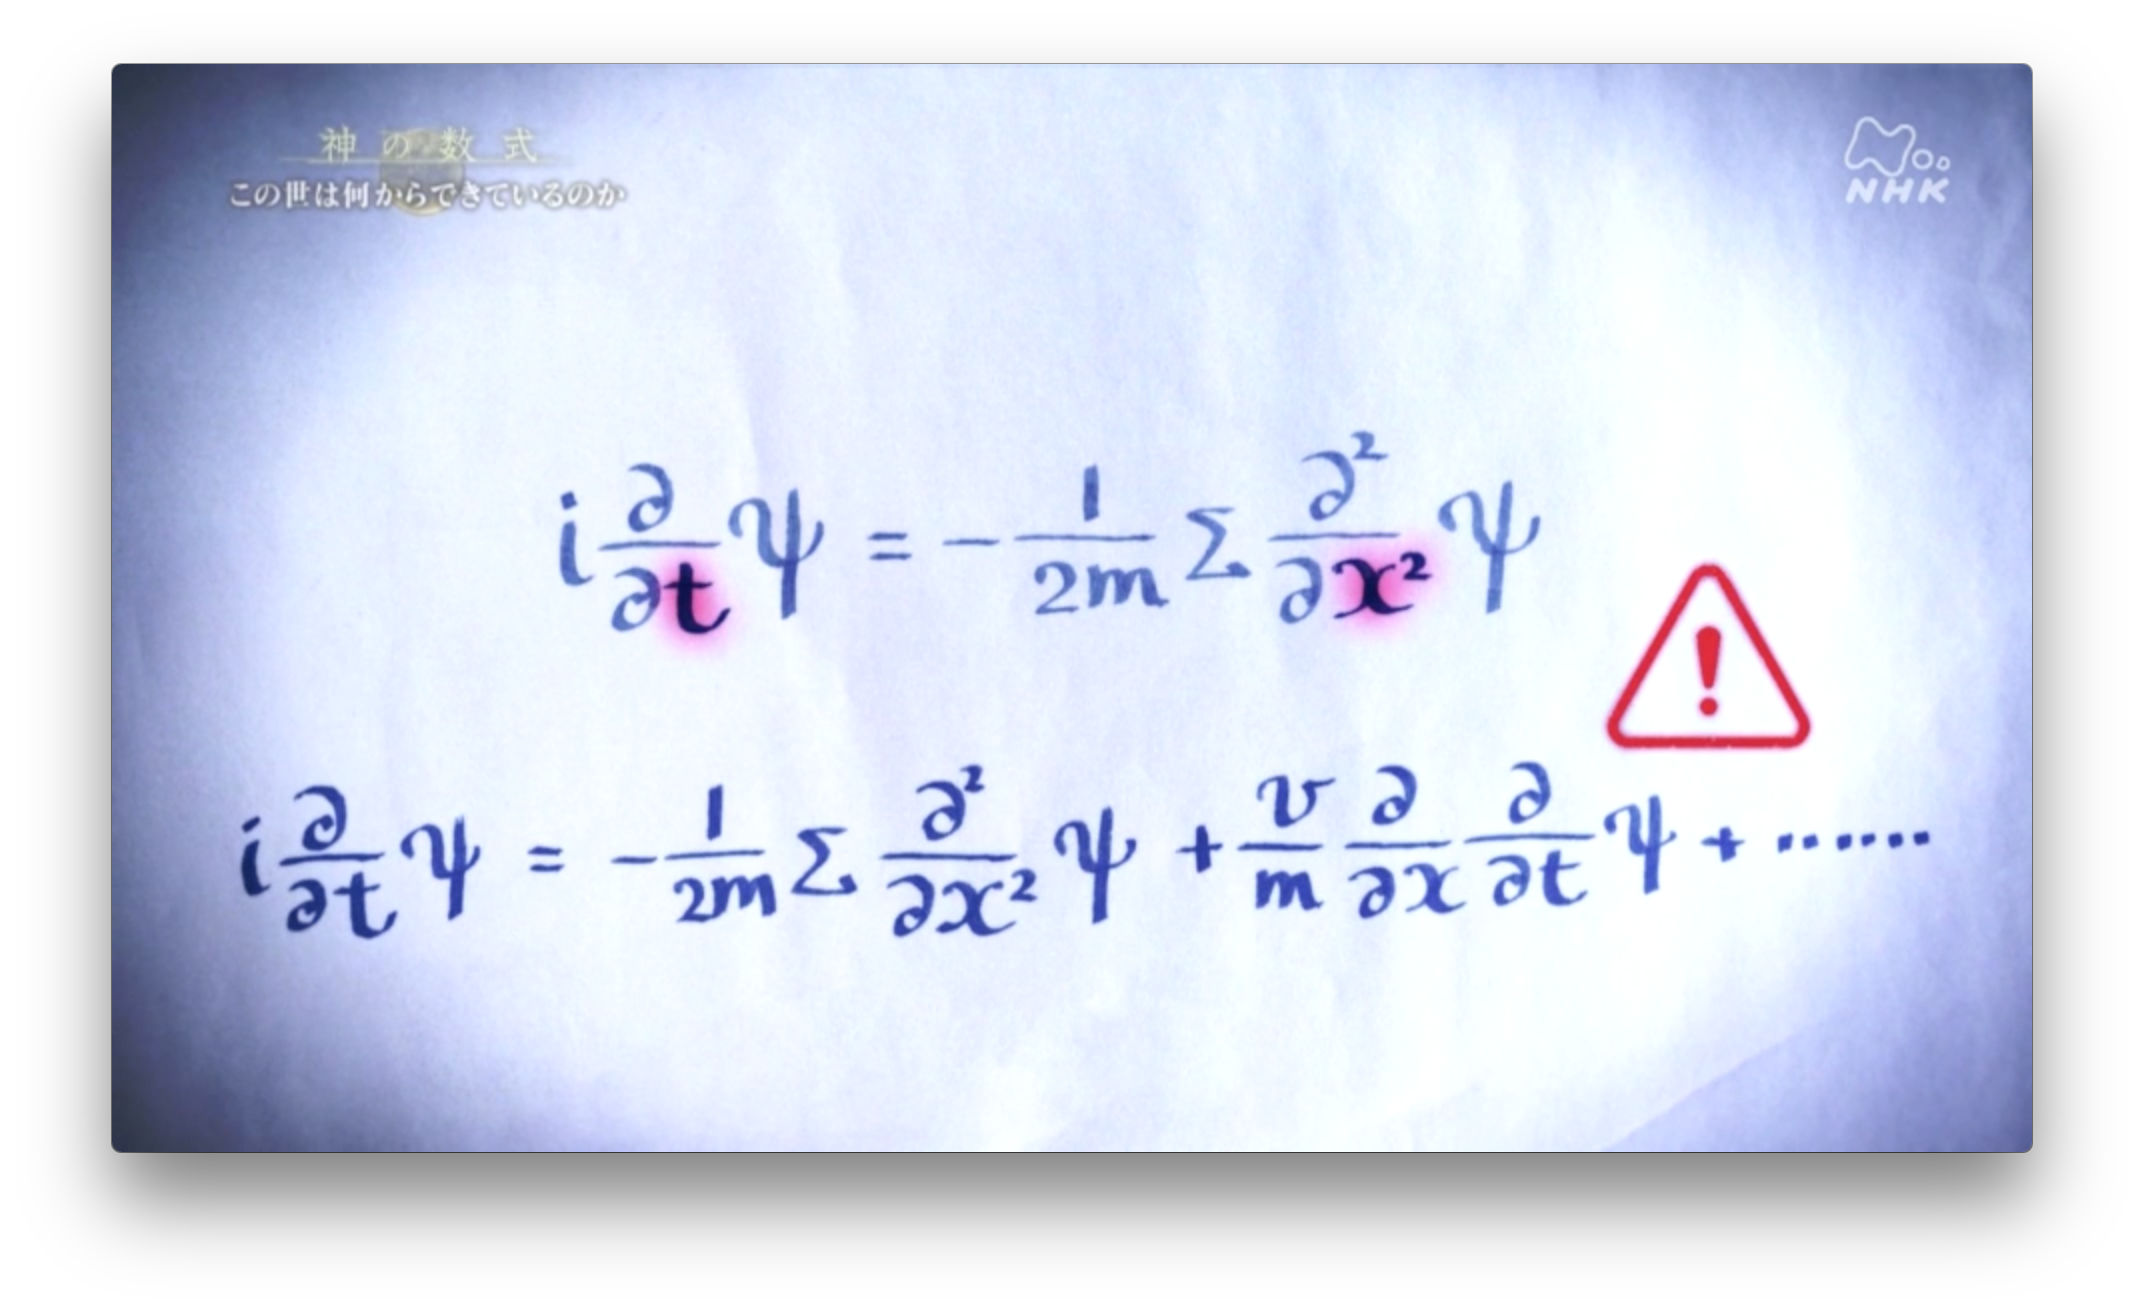 神の数式
この世は何からできているのか
NHK
i ∂/∂t ψ = − 1/2m Σ ∂²/∂x² ψ
i ∂/∂t ψ = − 1/2m Σ ∂²/∂x² ψ + v/m ∂/∂x ∂/∂t ψ + ......